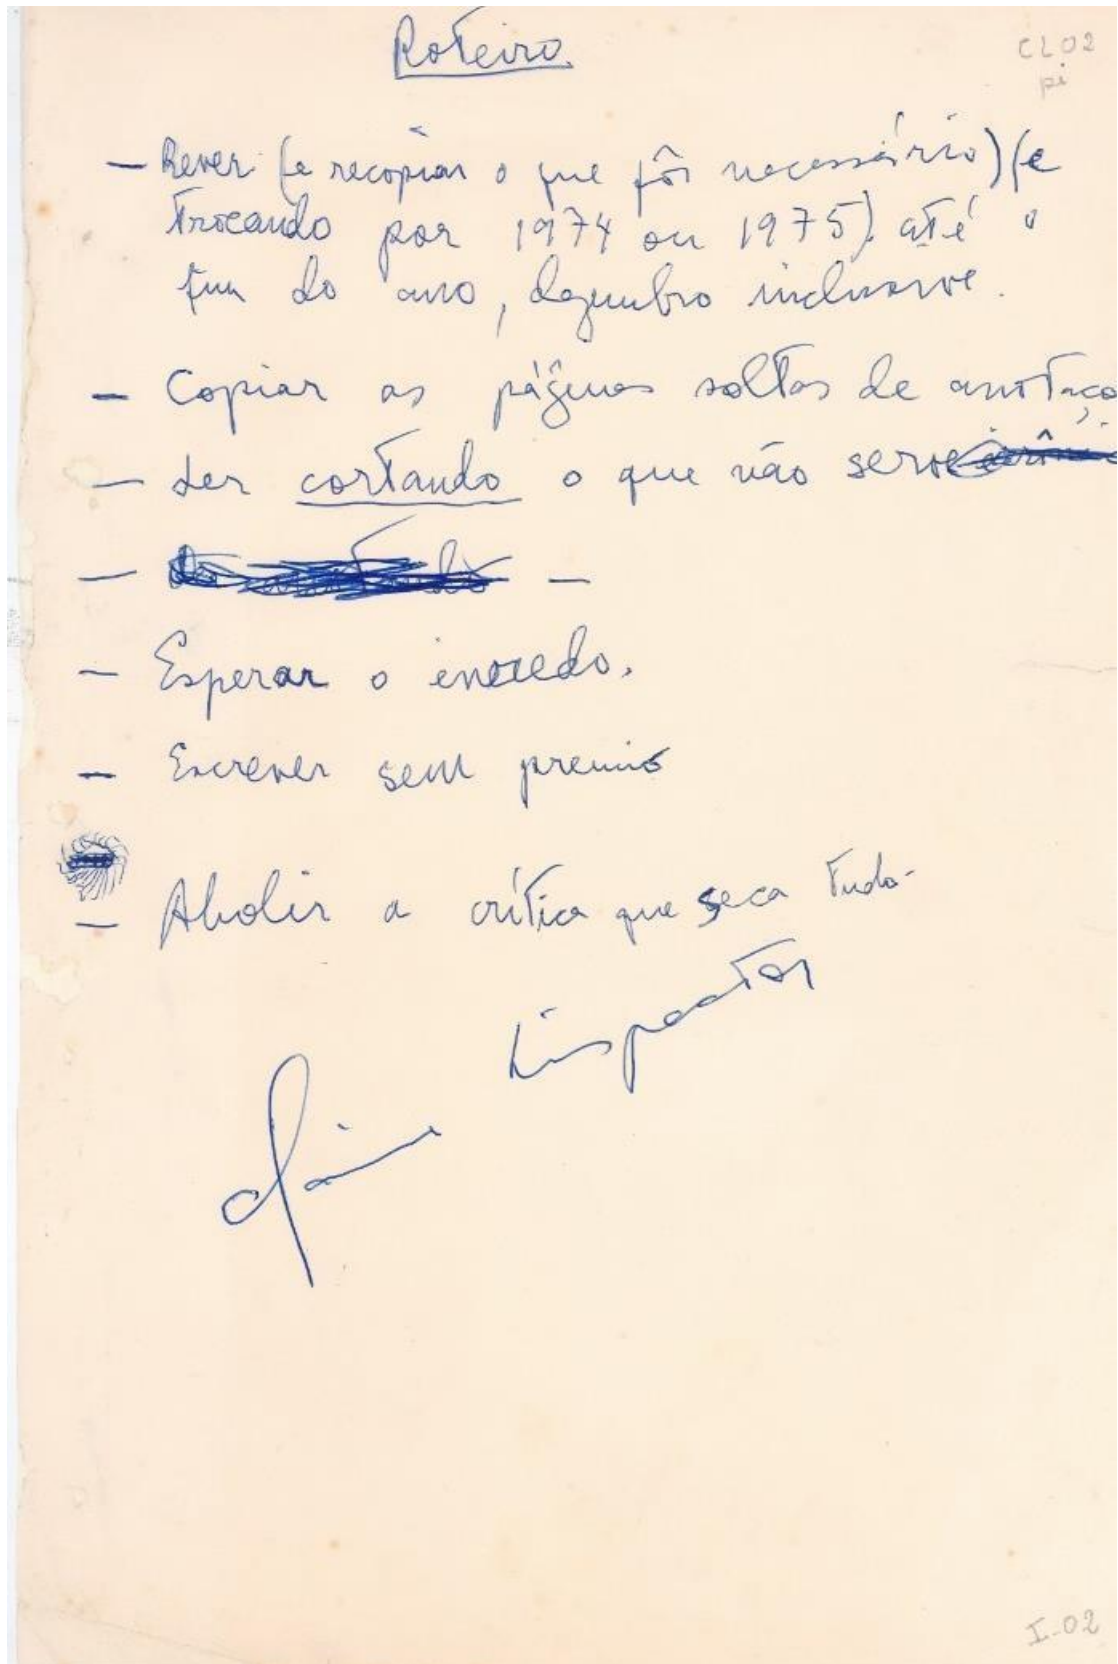 Roteiro.
CL02
pi
— Rever (e recopiar o que fôr necessário) (e
trocando por 1974 ou 1975) até o
fim do ano, dezembro inclusive.
— Copiar as páginas soltas de anotaço
— Ler cortando o que não serve
— —
— Esperar o enredo.
— Escrever sem premio
— Abolir a crítica que seca tudo-
Clarice Lispector
I-02